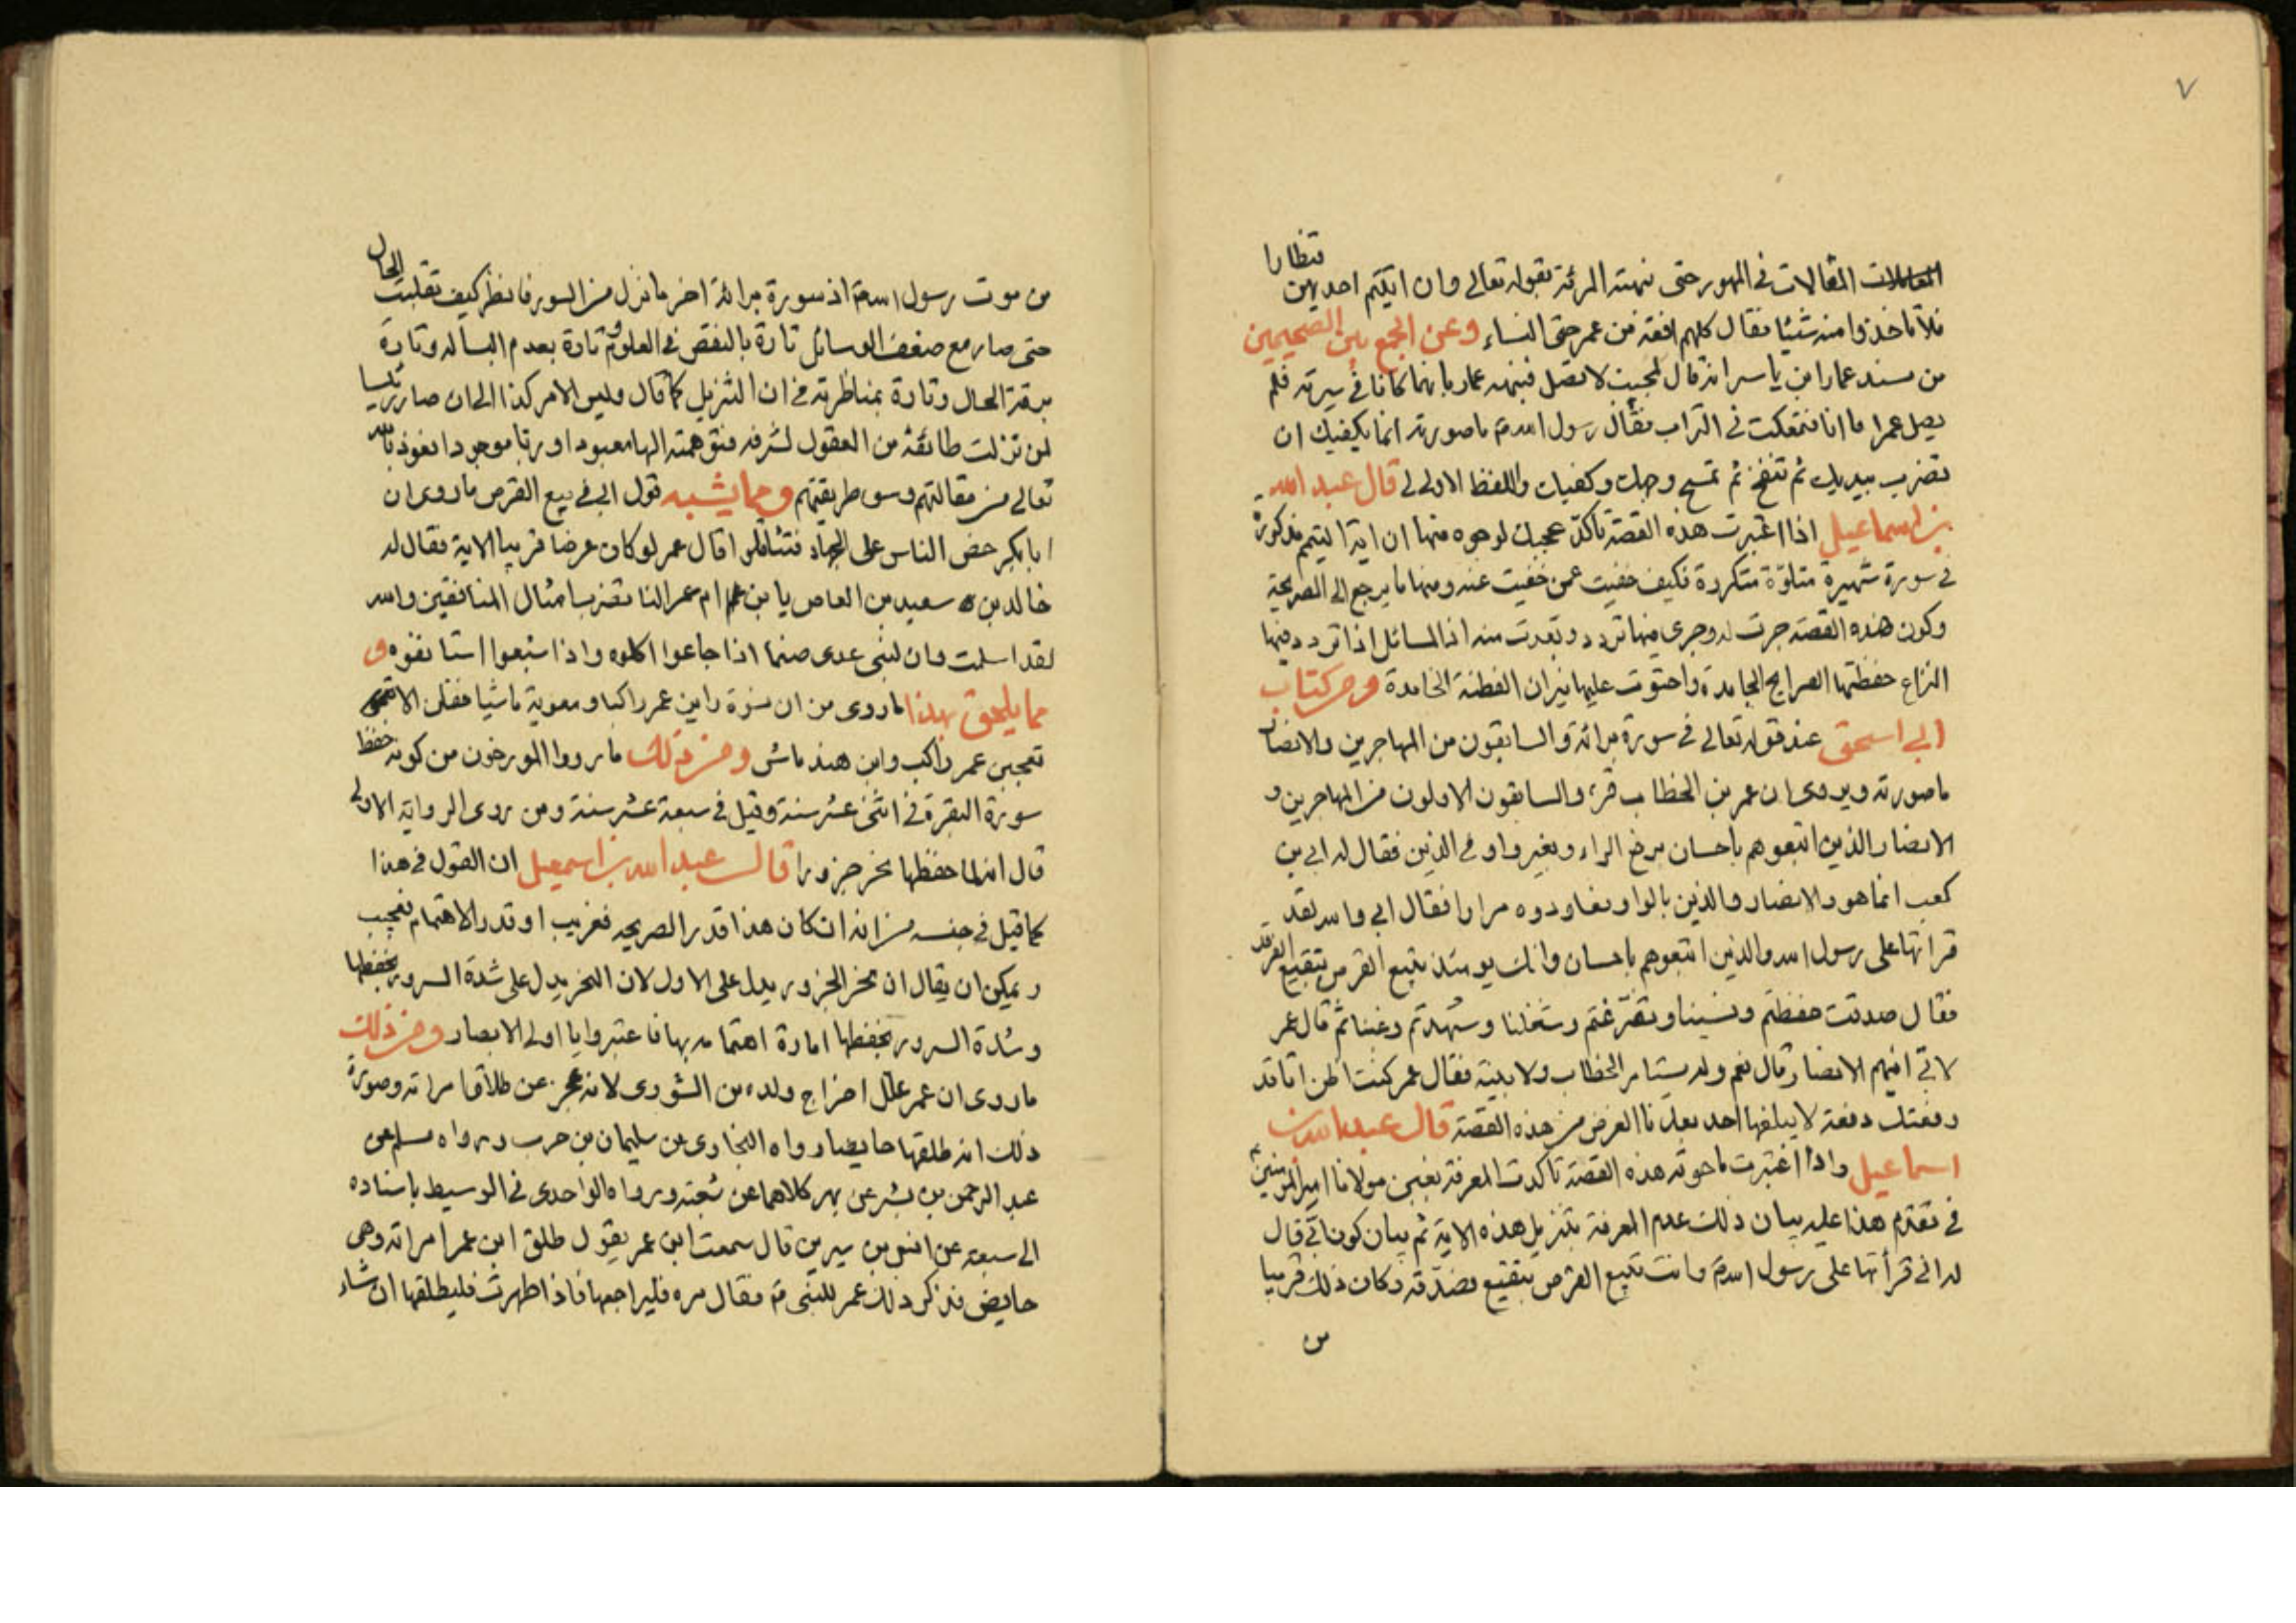 ٧
قنطارا
المقالات في المهور حتى نبهته المرئة بقوله تعالى وان اتيتم احديهن
فلا تاخذوا منه شيئا فقال كلهم افقه من عمر حتى النساء وعن الجمع بين الصحيحين
من مسند عمار ابن ياسر انه قال لمجيب لا تصل فنبهه عمار بانهما كانا في سرية فلم
يصل عمر اما انا فتمعكت في التراب فقال رسول الله ص ما صورته انما يكفيك ان
تضرب بيديك ثم تنفخ ثم تمسح وجهك وكفيك واللفظ الاول لي قال عبد الله
بن اسماعيل اذا اعتبرت هذه القصة تاكد عجبك لوجوه منها ان اية التيمم مذكورة
في سورة شهيرة متلوة متكررة فكيف خفيت عمن خفيت عنه ومنها ما يرجع الى القريحة
وكون هذه القصة جرت له وجرى فيها تردد وبعدت منه اذ المسائل اذا تردد فيها
النزاع حفظتها القرايح الجامدة واحتوت عليها نيران الفطنة الخامدة ومن كتاب
ابي اسحق عند قوله تعالى في سورة برائة والسابقون من المهاجرين والانصار
ما صورته ويروى ان عمر بن الخطاب قرء والسابقون الاولون من المهاجرين و
الانصار الذين اتبعوهم باحسان برفع الراء وبغير واو في الذين فقال له ابي بن
كعب انما هو والانصار والذين بالواو فعاودوه مرارا فقال ابي والله لقد
قراتها على رسول الله والذين اتبعوهم باحسان وانك يومئذ تبيع القرض ببقيع الغرقد
فقال صدقت حفظتم ونسينا وتفرغتم وشغلنا وشهدتم وغبنا ثم قال عمر
لابي افيهم الانصار قال نعم ولم يستامر الخطاب ولا بنيه فقال عمر كنت اظن انا قد
رفعنا رفعة لا يبلغها احد بعدنا الغرض من هذه القصة قال عبد الله بن
اسماعيل واذا اعتبرت ما حوته هذه القصة تاكدت المعرفة بغبن مولانا امير المومنين
في تقدم هذا عليه بيان ذلك عدم المعرفة بتنزيل هذه الاية ثم بيان كون ابي قال
له اني قرأتها على رسول الله ص وانت تبيع القرض ببقيع فصدقه وكان ذلك قريبا
من
الحال
من موت رسول الله ص اذ سورة برائة اخر ما نزل من السور فانظر كيف تقلبت
حتى صار مع ضعف الوسائل تارة بالنقص في العلوم وتارة بعدم البسالة وتارة
برقة الحال وتارة بمناظرته في ان التنزيل كما قال وليس الامر كذا الى ان صار رئيسا
لمن نزلت طائفة من العقول لشرفه فتوهمته الها معبودا وربا موجودا نعوذ بالله
تعالى من مقالتهم وسوء طريقتهم ومما يشبه قول ابي في بيع القرض ما روى ان
ابا بكر حض الناس على الجهاد فتثاقلوا قال عمر لو كان عرضا قريبا الاية فقال له
خالد بن سعيد بن العاص يا بن ام عمر النا تضرب امثال المنافقين والله
لقد اسلمت وان لبني عدى صنما اذا جاعوا اكلوه واذا شبعوا استانفوه و
مما يلحق بهذا ما روى من ان نسوة راين عمر راكبا ومعوية ماشيا فقلن الا
تعجبن عمر راكب وابن هند ماش ومن ذلك ما رووا المورخون من كونه حفظ
سورة البقرة في اثنى عشر سنة وقيل في سبعة عشر سنة ومن روى الرواية الاولى
قال انه لما حفظها نحر جزورا قال عبد الله بن اسمعيل ان القول في هذا
كما قيل في جنسه من انه ان كان هذا قدر القريحه فغريب او قدر الاهتمام فعجيب
ويمكن ان يقال ان نحر الجزور يدل على الاول لان النحر يدل على شدة السرور بحفظها
وشدة السرور بحفظها امارة اهتمامه بها فاعتبروا يا اولي الابصار ومن ذلك
ما روى ان عمر علل اخراج ولده من الشورى لانه عجز عن طلاق امراته وصورة
ذلك انه طلقها حايضا رواه البخاري عن سليمان بن حرب ورواه مسلم عن
عبد الرحمن بن بشر عن بهز كلاهما عن شعبة ورواه الواحدى في الوسيط باسناده
الى شعبة عن انس بن سيرين قال سمعت ابن عمر يقول طلق ابن عمر امراته وهى
حايض فذكر ذلك عمر للنبى ص فقال مره فليراجعها فاذا طهرت فليطلقها ان شاء